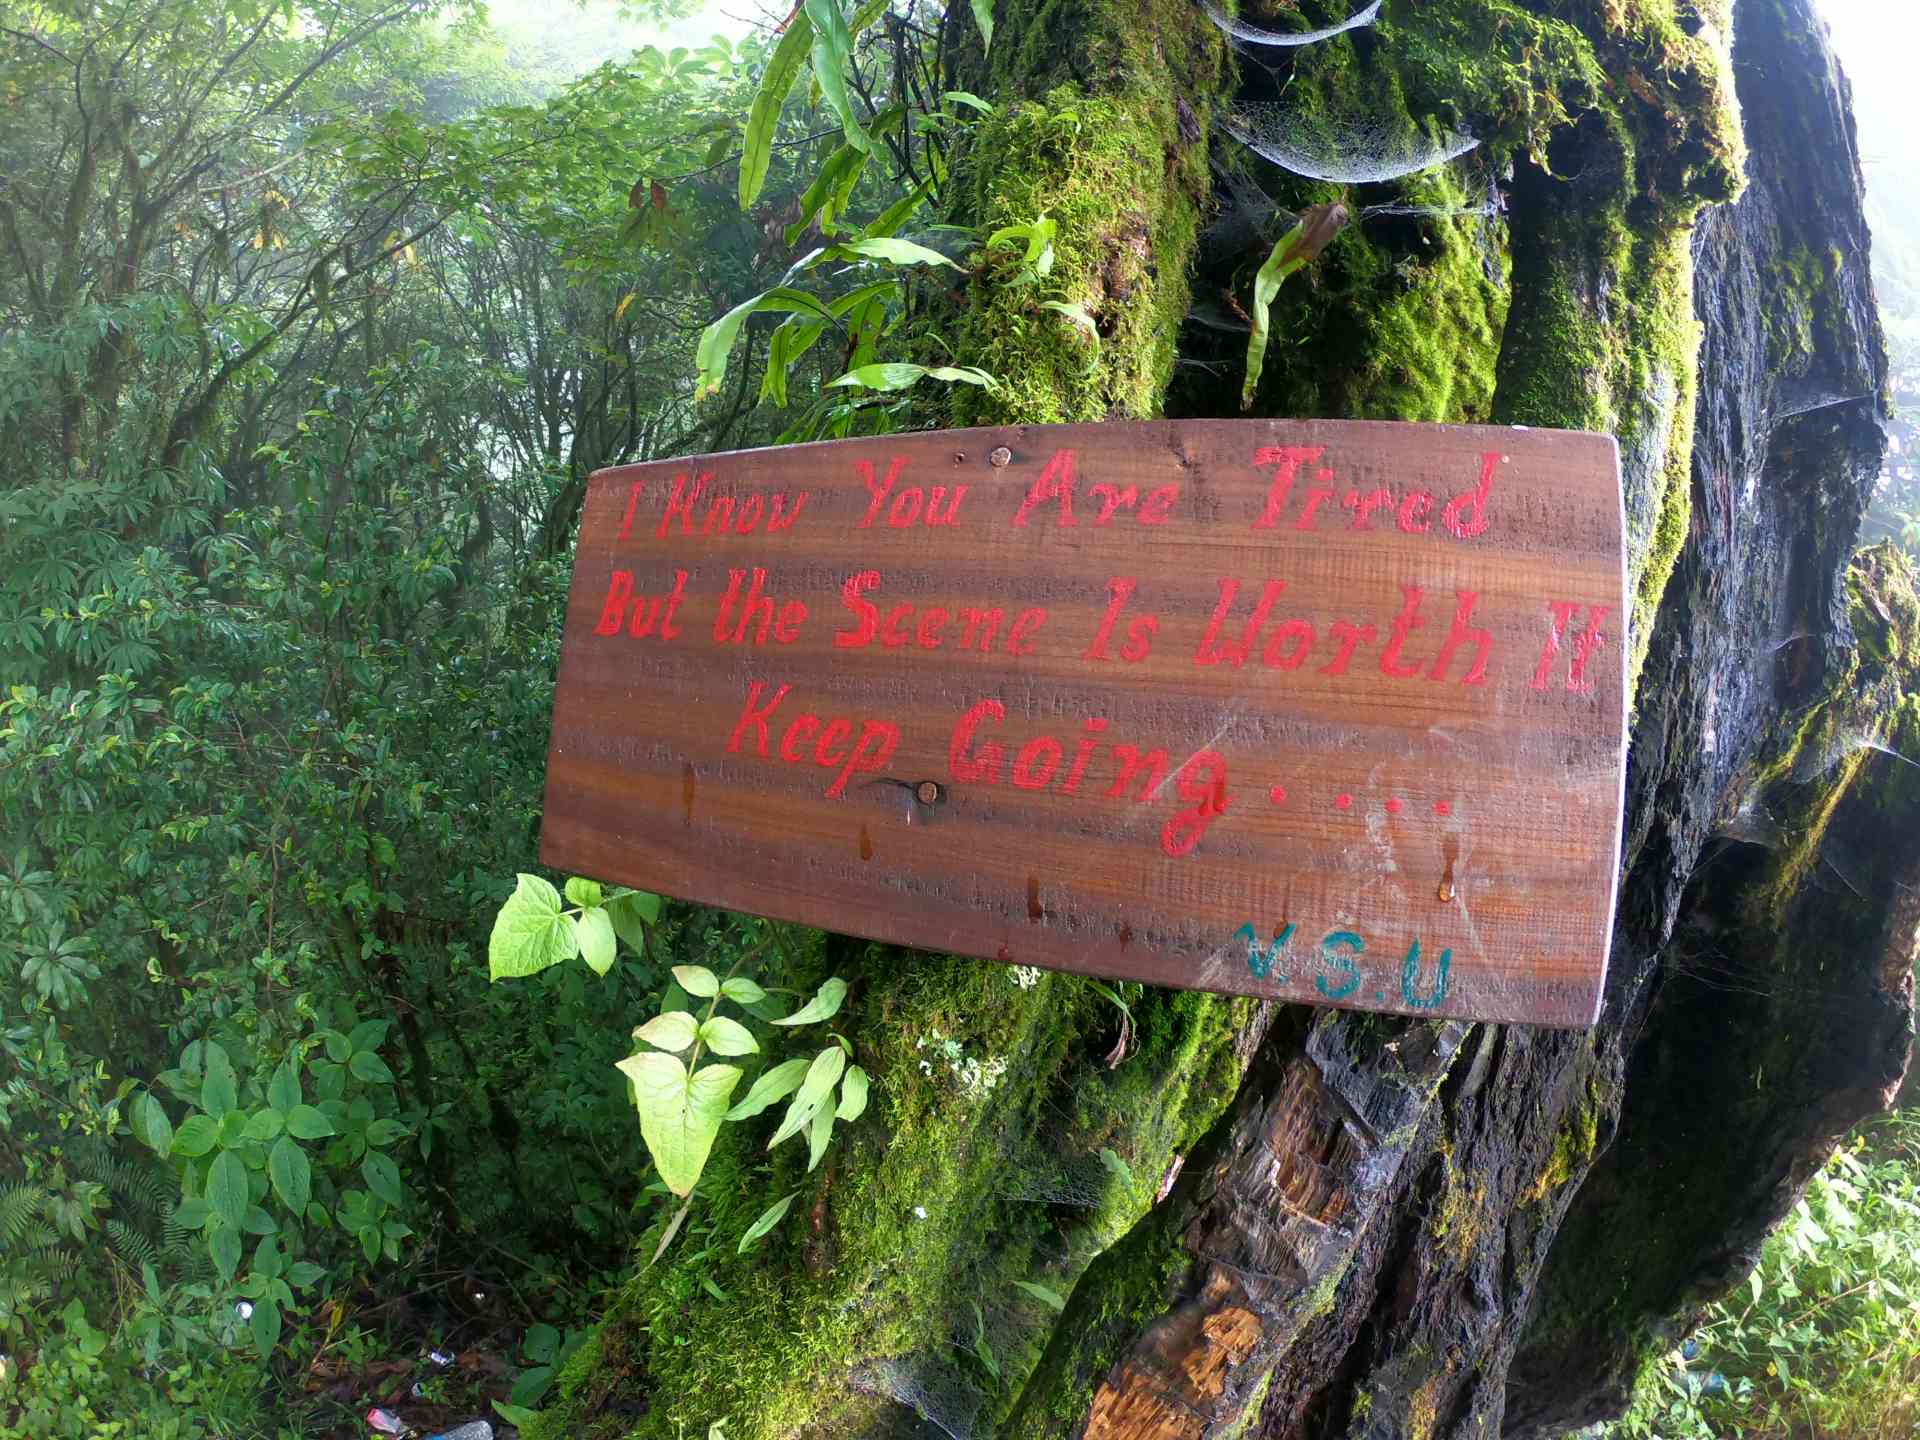 I Know You Are Tired
But the Scene Is Worth It
Keep Going....
V.S.U